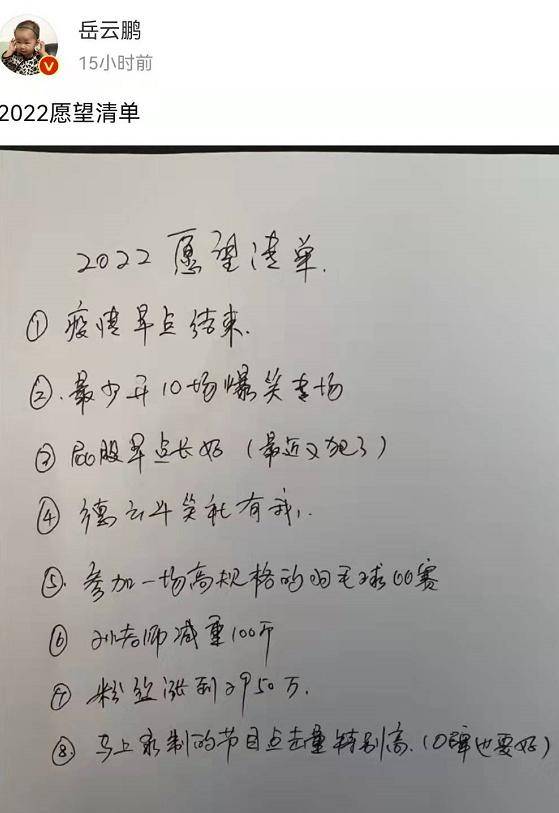 岳云鹏
15小时前
2022愿望清单
2022愿望清单.
① 疫情早点结束.
②. 最少开10场爆笑专场
③ 屁股早点长好（最近又犯了）
④ 德云斗笑社有我..
⑤. 参加一场高规格的羽毛球比赛
⑥ 孙老师减重100斤
⑦ 粉丝涨到2950万.
⑧. 马上录制的节目点击量特别高.（口碑也要好）